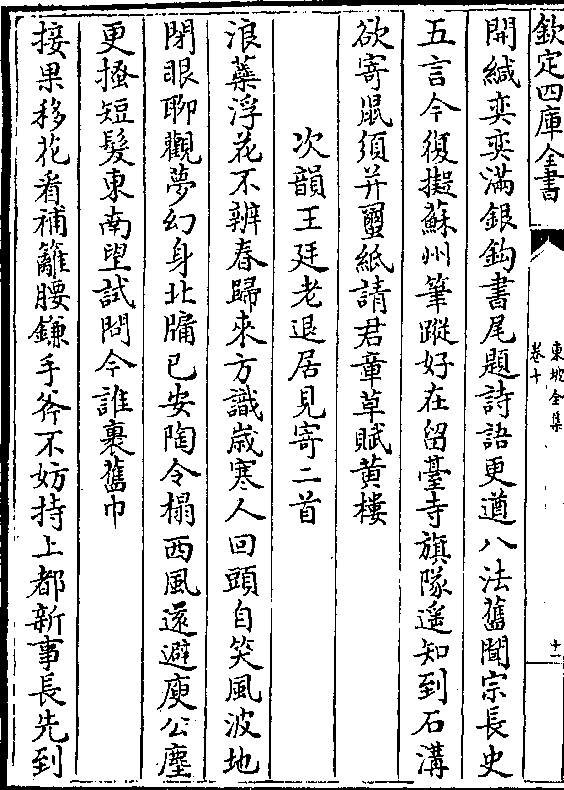 欽定四庫全書
東坡全集
卷十
十一
開緘奕奕滿銀鉤書尾題詩語更遒八法舊聞宗長史
五言今復擬蘇州筆蹤好在留臺寺旗隊遥知到石溝
欲寄鼠須并蠒紙請君章草賦黄樓
次韻王廷老退居見寄二首
浪蘂浮花不辨春歸來方識嵗寒人回頭自笑風波地
閉眼聊觀夢幻身北牖已安陶令榻西風還避庾公塵
更搔短髮東南望試問今誰裹舊巾
接果移花看補籬腰鎌手斧不妨持上都新事長先到